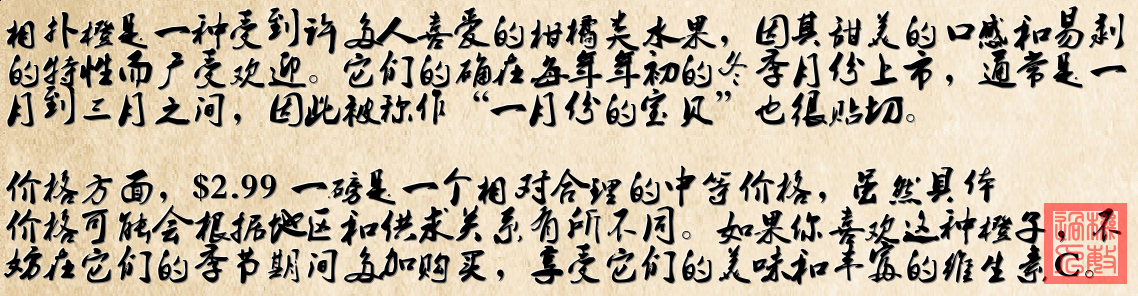 相扑橙是一种受到许多人喜爱的柑橘类水果，因其甜美的口感和易剥
的特性而广受欢迎。它们的确在每年年初的冬季月份上市，通常是一
月到三月之间，因此被称作“一月份的宝贝”也很贴切。
价格方面，$2.99 一磅是一个相对合理的中等价格，虽然具体
价格可能会根据地区和供求关系有所不同。如果你喜欢这种橙子，不
妨在它们的季节期间多加购买，享受它们的美味和丰富的维生素C。